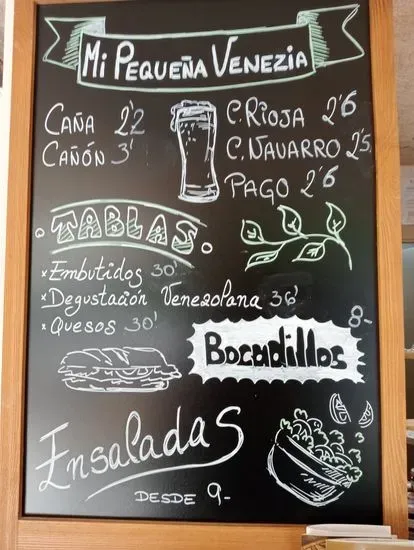 Mi Pequeña Venezia
Caña 2'2
Cañón 3'
C. Rioja 2'6
C. Navarro 2'5
Pago 2'6
Tablas
Embutidos 30'
Degustación Venezolana 36'
Quesos 30'
Bocadillos 8-
Ensaladas
desde 9-